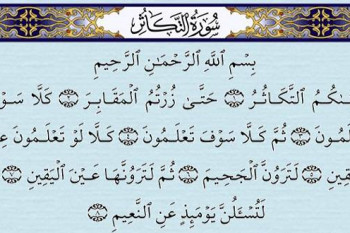 سُورَةُ التَّكَاثُرِ
بِسْمِ ٱللَّهِ ٱلرَّحْمَٰنِ ٱلرَّحِيمِ
ـكُمُ ٱلتَّكَاثُرُ ١ حَتَّىٰ زُرْتُمُ ٱلْمَقَابِرَ ٢ كَلَّا سَوْ
ـمُونَ ٣ ثُمَّ كَلَّا سَوْفَ تَعْلَمُونَ ٤ كَلَّا لَوْ تَعْلَمُونَ عِ
ـقِينِ ٥ لَتَرَوُنَّ ٱلْجَحِيمَ ٦ ثُمَّ لَتَرَوُنَّهَا عَيْنَ ٱلْيَقِينِ ٧
لَتُسْـَٔلُنَّ يَوْمَئِذٍ عَنِ ٱلنَّعِيمِ ٨